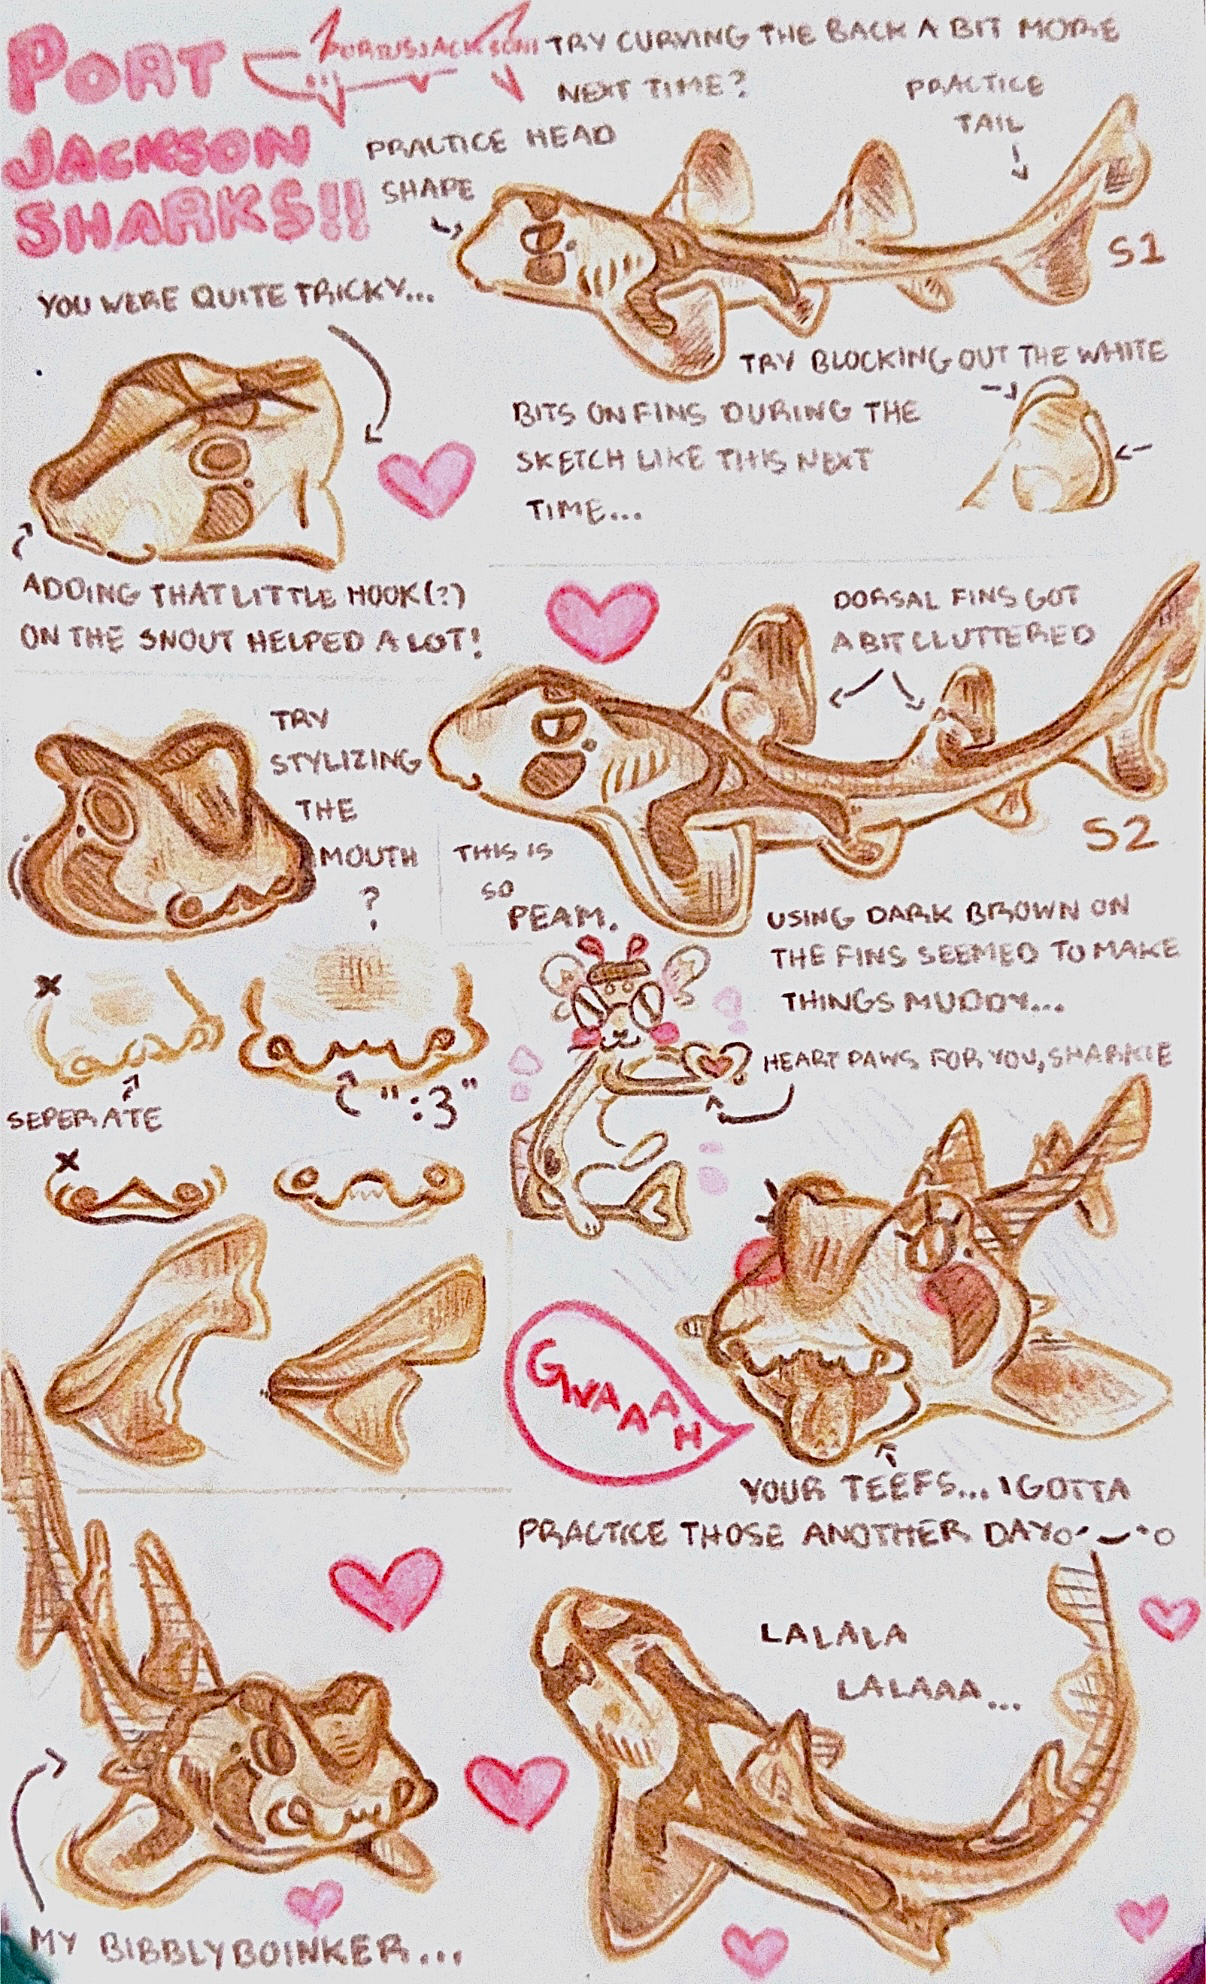 PORT
JACKSON
SHARKS!!
TRY CURVING THE BACK A BIT MORE
NEXT TIME?
PRACTICE
TAIL
PRACTICE HEAD
SHAPE
S1
YOU WERE QUITE TRICKY...
TRY BLOCKING OUT THE WHITE
BITS ON FINS DURING THE
SKETCH LIKE THIS NEXT
TIME...
ADDING THAT LITTLE HOOK(?)
ON THE SNOUT HELPED A LOT!
DORSAL FINS GOT
A BIT CLUTTERED
S2
TRY
STYLIZING
THE
MOUTH
?
THIS IS
SO
PEAM.
USING DARK BROWN ON
THE FINS SEEMED TO MAKE
THINGS MUDDY...
HEART PAWS FOR YOU, SHARKIE
x
SEPERATE
":3"
x
GWAAAAH
YOUR TEEFS... I GOTTA
PRACTICE THOSE ANOTHER DAY
LALALA
LALAAA...
MY BIBBLYBOINKER...